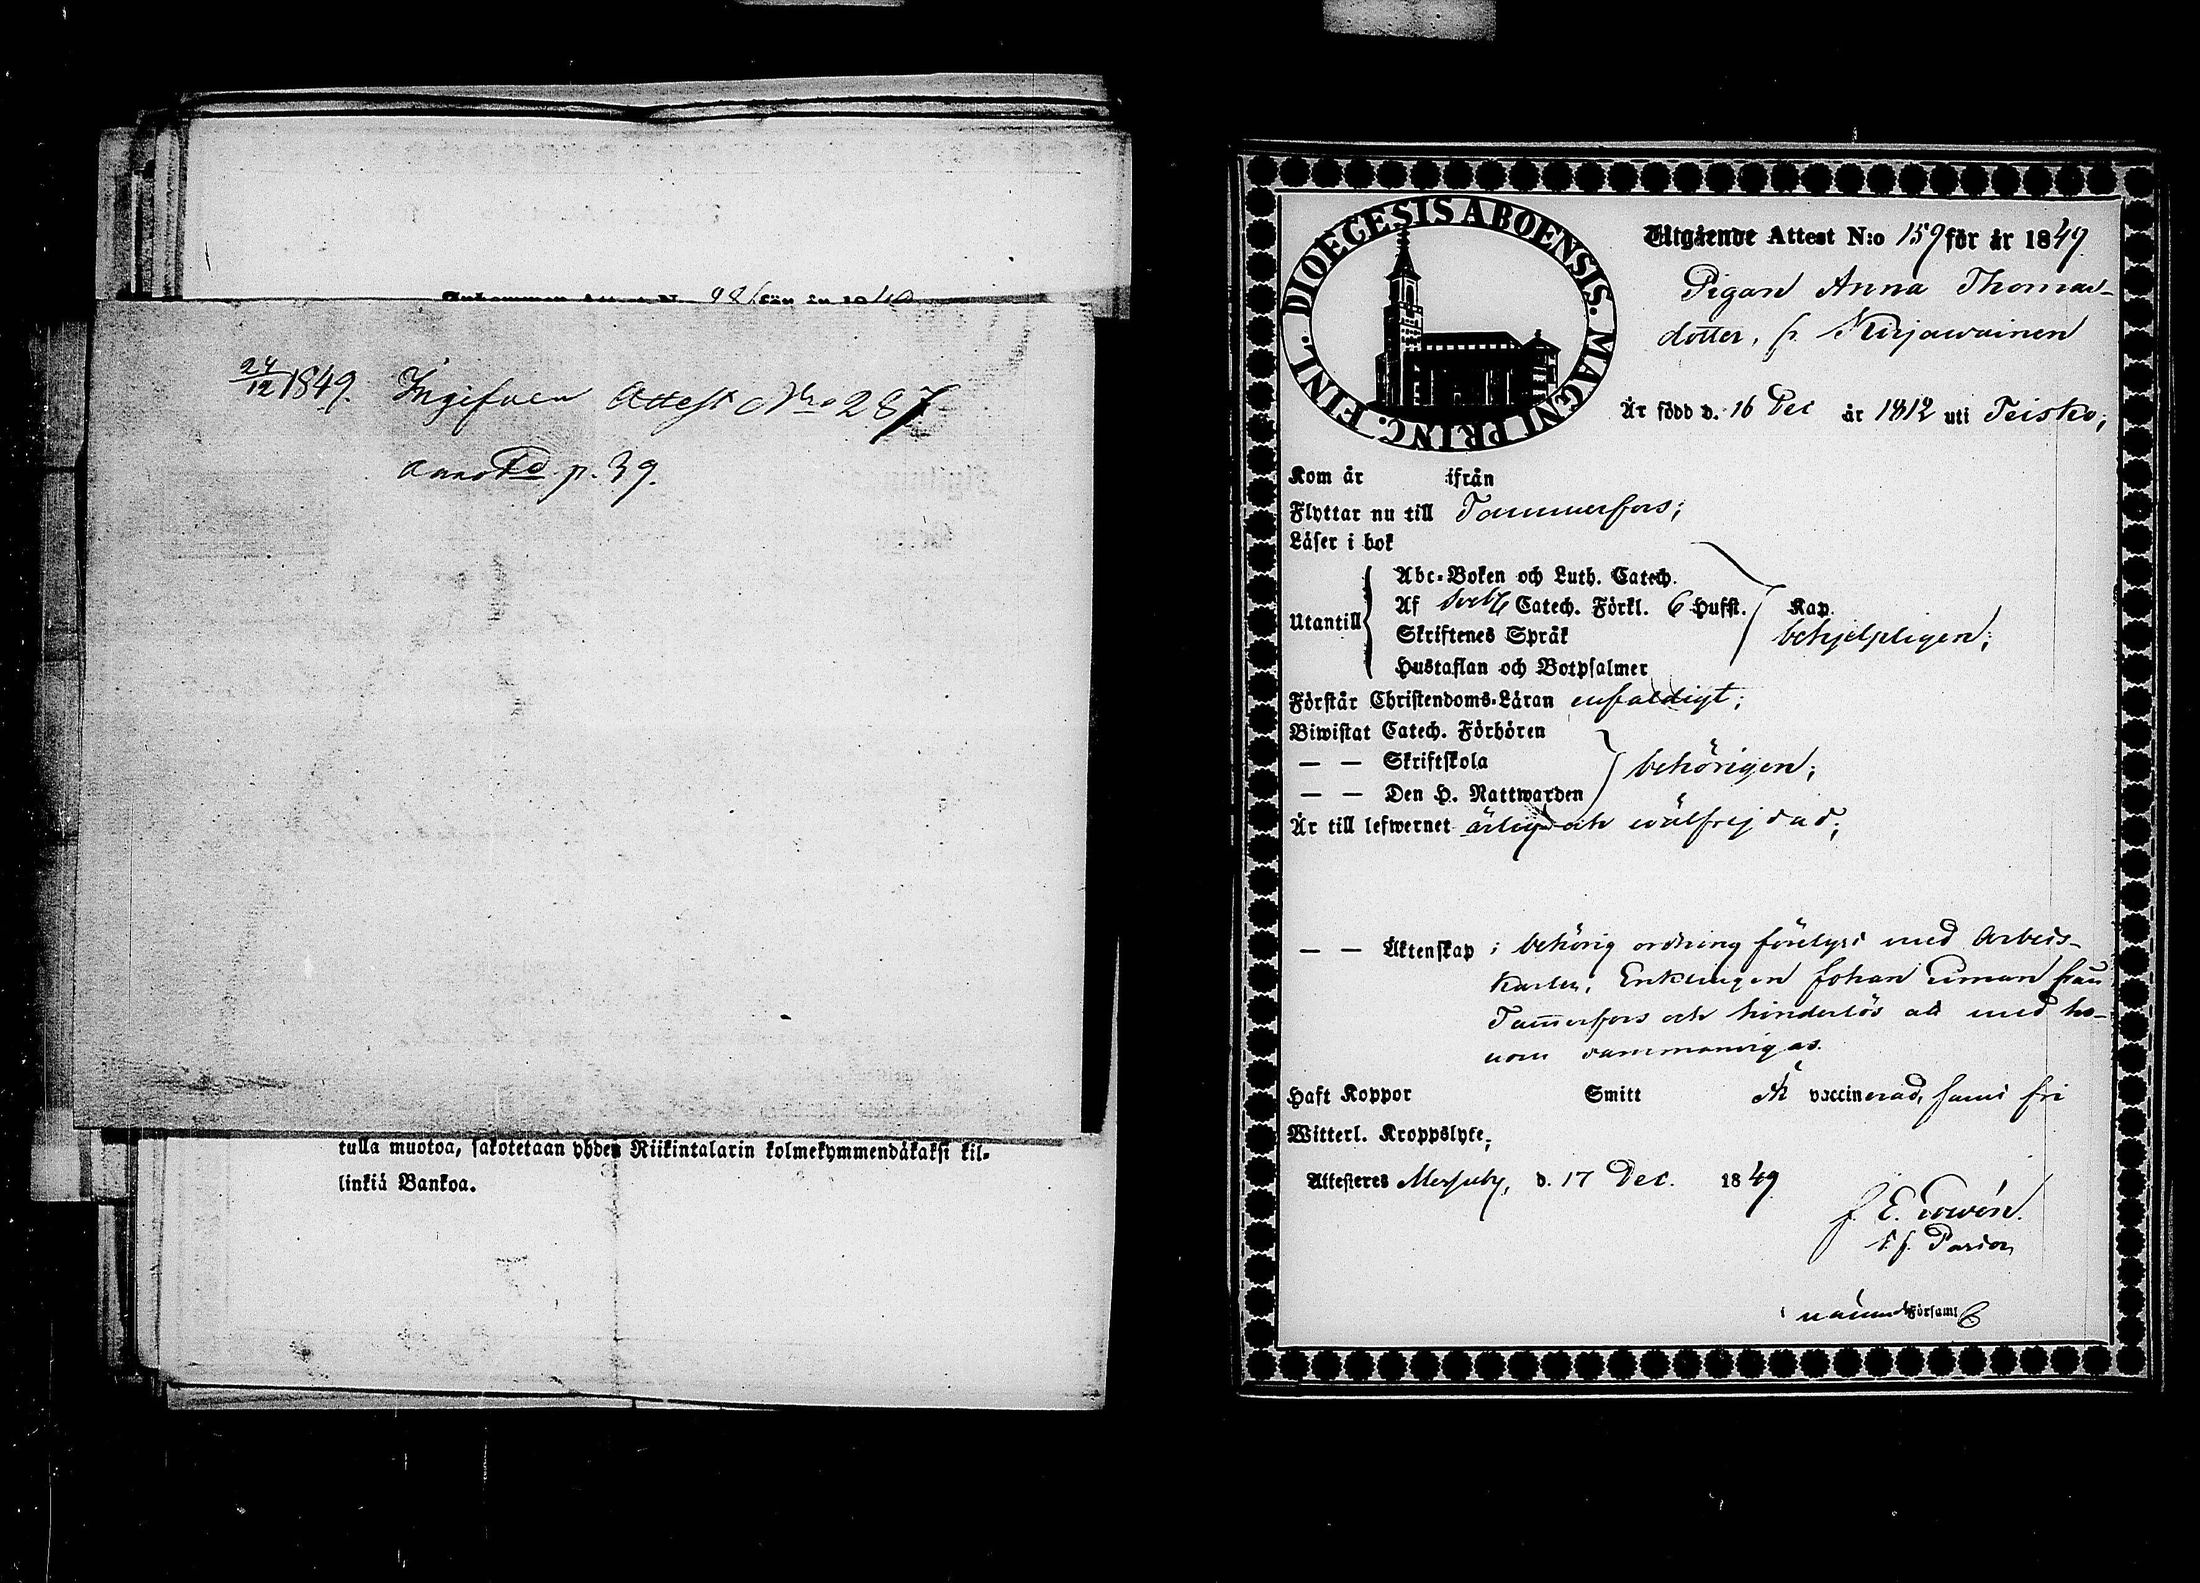 Inkommen Attest N:o 286 för år 1849
24/12 1849. Ingifven Attest No 287
annot:d p. 39.
tulla muotoa, sakotetaan yhden Riikintalarin kolmekymmendäkaksi kil-
linkiä Bankoa.
DIOECESIS ABOENSIS. MAGNI PRINC. FINL.
Utgående Attest N:o 159 för år 1849.
Pigan Anna Thomas-
dotter, f. Kirjawainen
Är född d. 16 Dec år 1812 uti Teisko;
Kom år ifrån
Flyttar nu till Tammerfors;
Läser i bok
Utantill
Abc-Boken och Luth. Catech.
Af Sveb. Catech. Förkl. 6 Hufst. Kap.
Skriftenes Språk
behjelpligen;
Hustaflan och Botpsalmer
Förstår Christendoms-Läran enfaldigt;
Biwistat Catech. Förhören
— — Skriftskola
behörigen;
— — Den H. Nattwarden
Är till lefwernet ärlig och wälfrejdad;
— — Äktenskap i behörig ordning förelyst med Arbets-
karlen, Enklingen Johan Ekman från
Tammerfors och hinderlös att med ho-
nom sammanvigas.
Haft Koppor Smitt Är vaccinerad, samt fri
Witterl. Kroppslyte;
Attesteres Messuby, d. 17 Dec. 1849
t. f. Pastor
i nämnd Församl